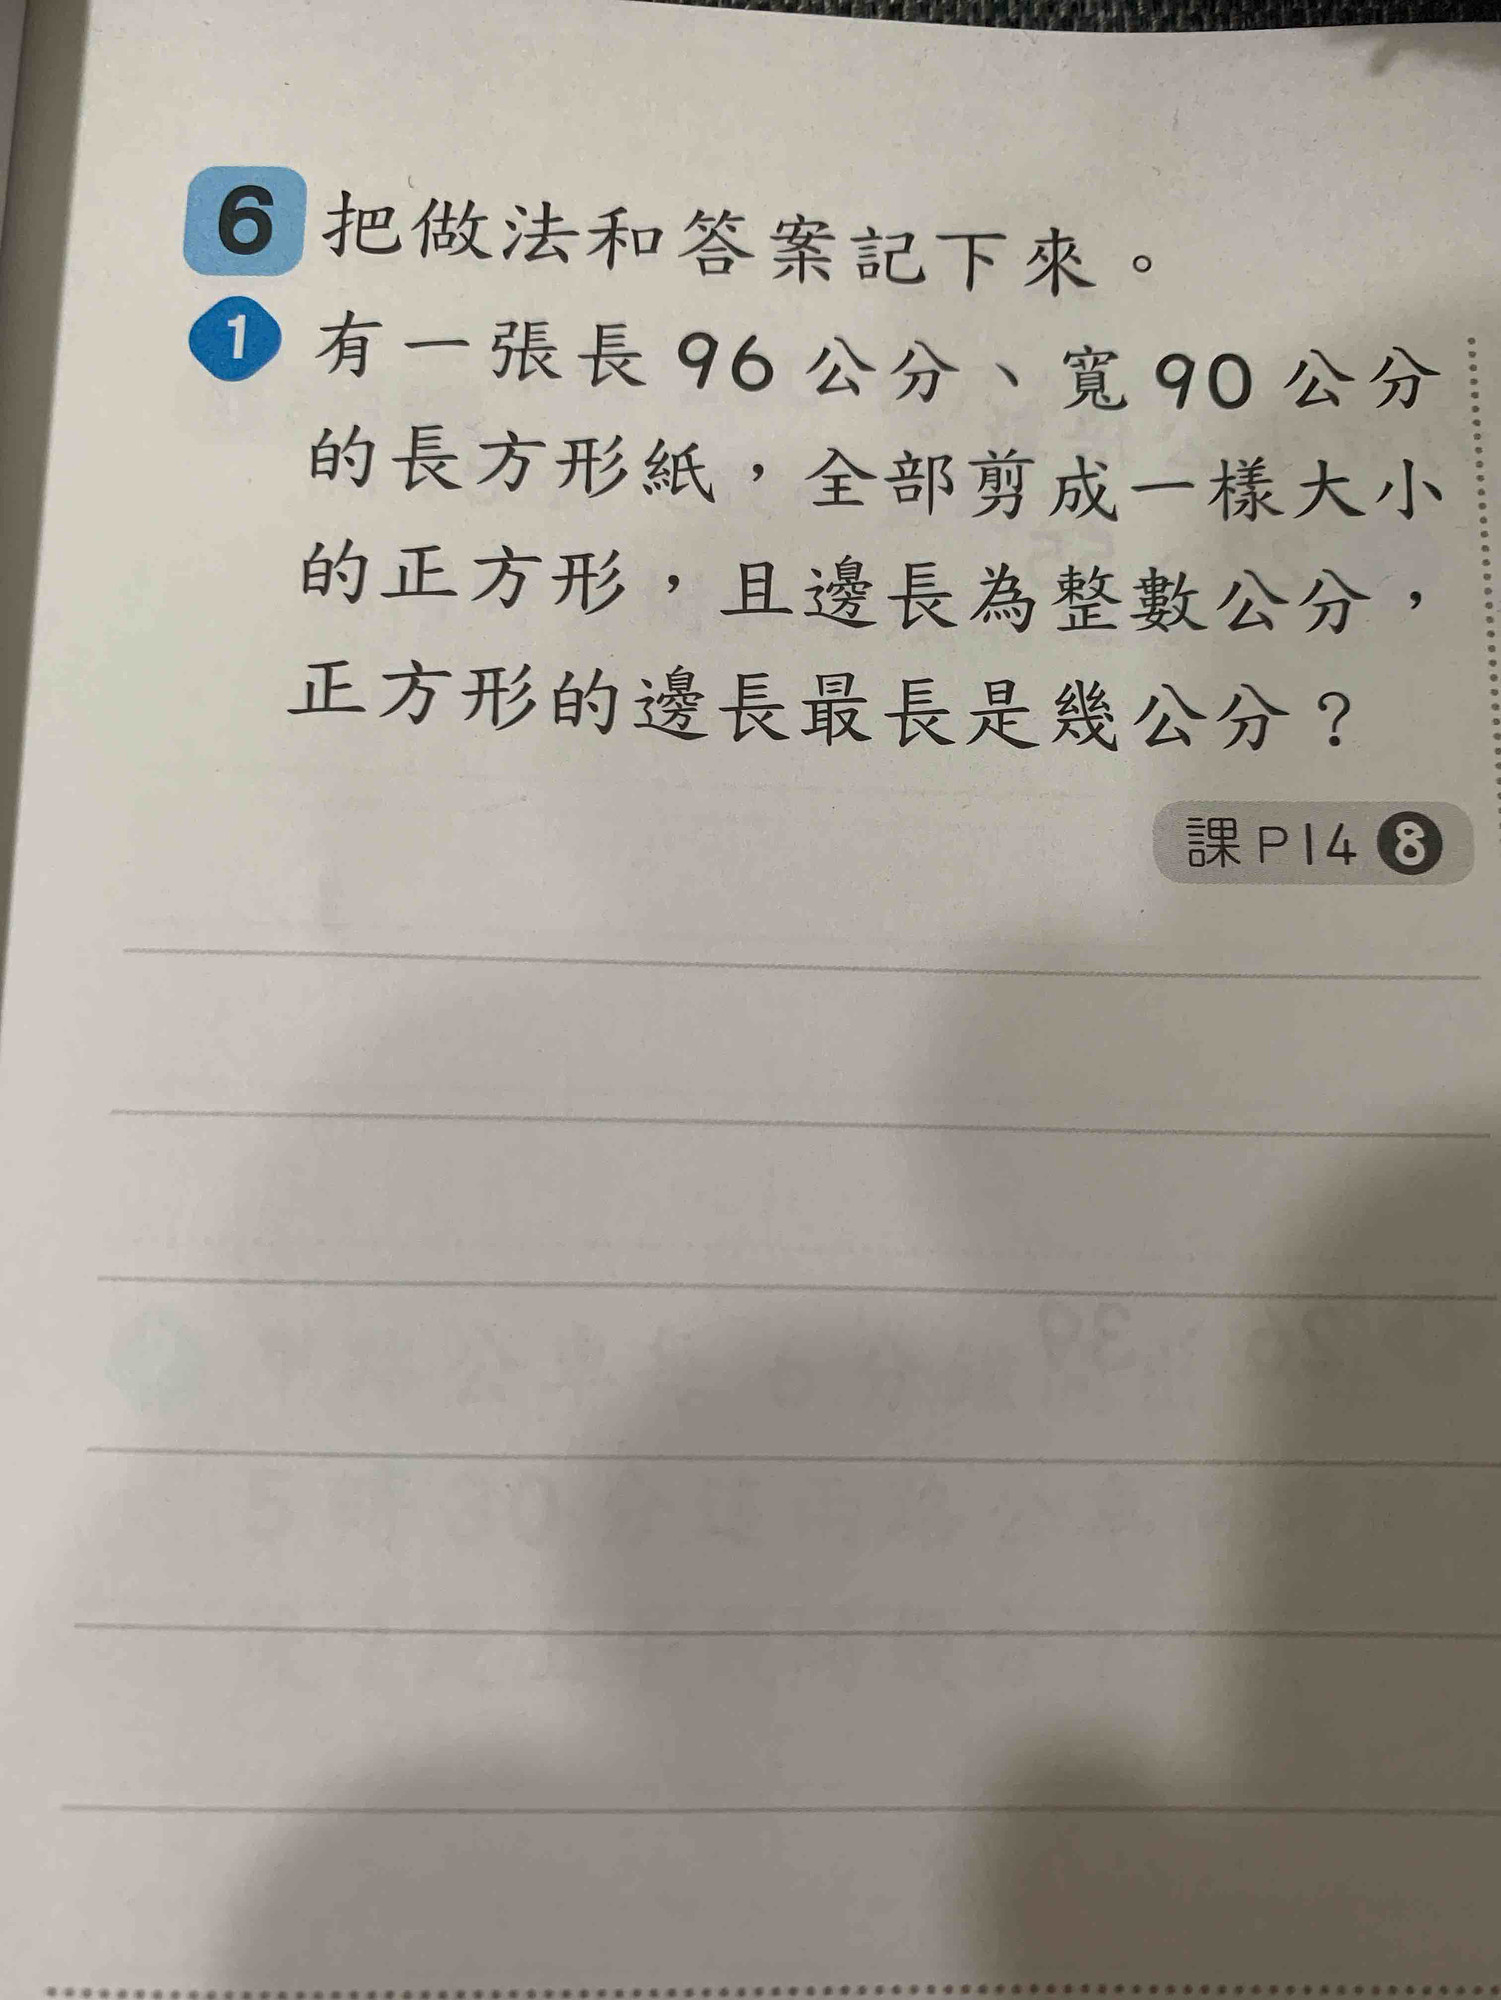 6 把做法和答案記下來。
1 有一張長96公分、寬90公分
的長方形紙，全部剪成一樣大小
的正方形，且邊長為整數公分，
正方形的邊長最長是幾公分？
課P14 8